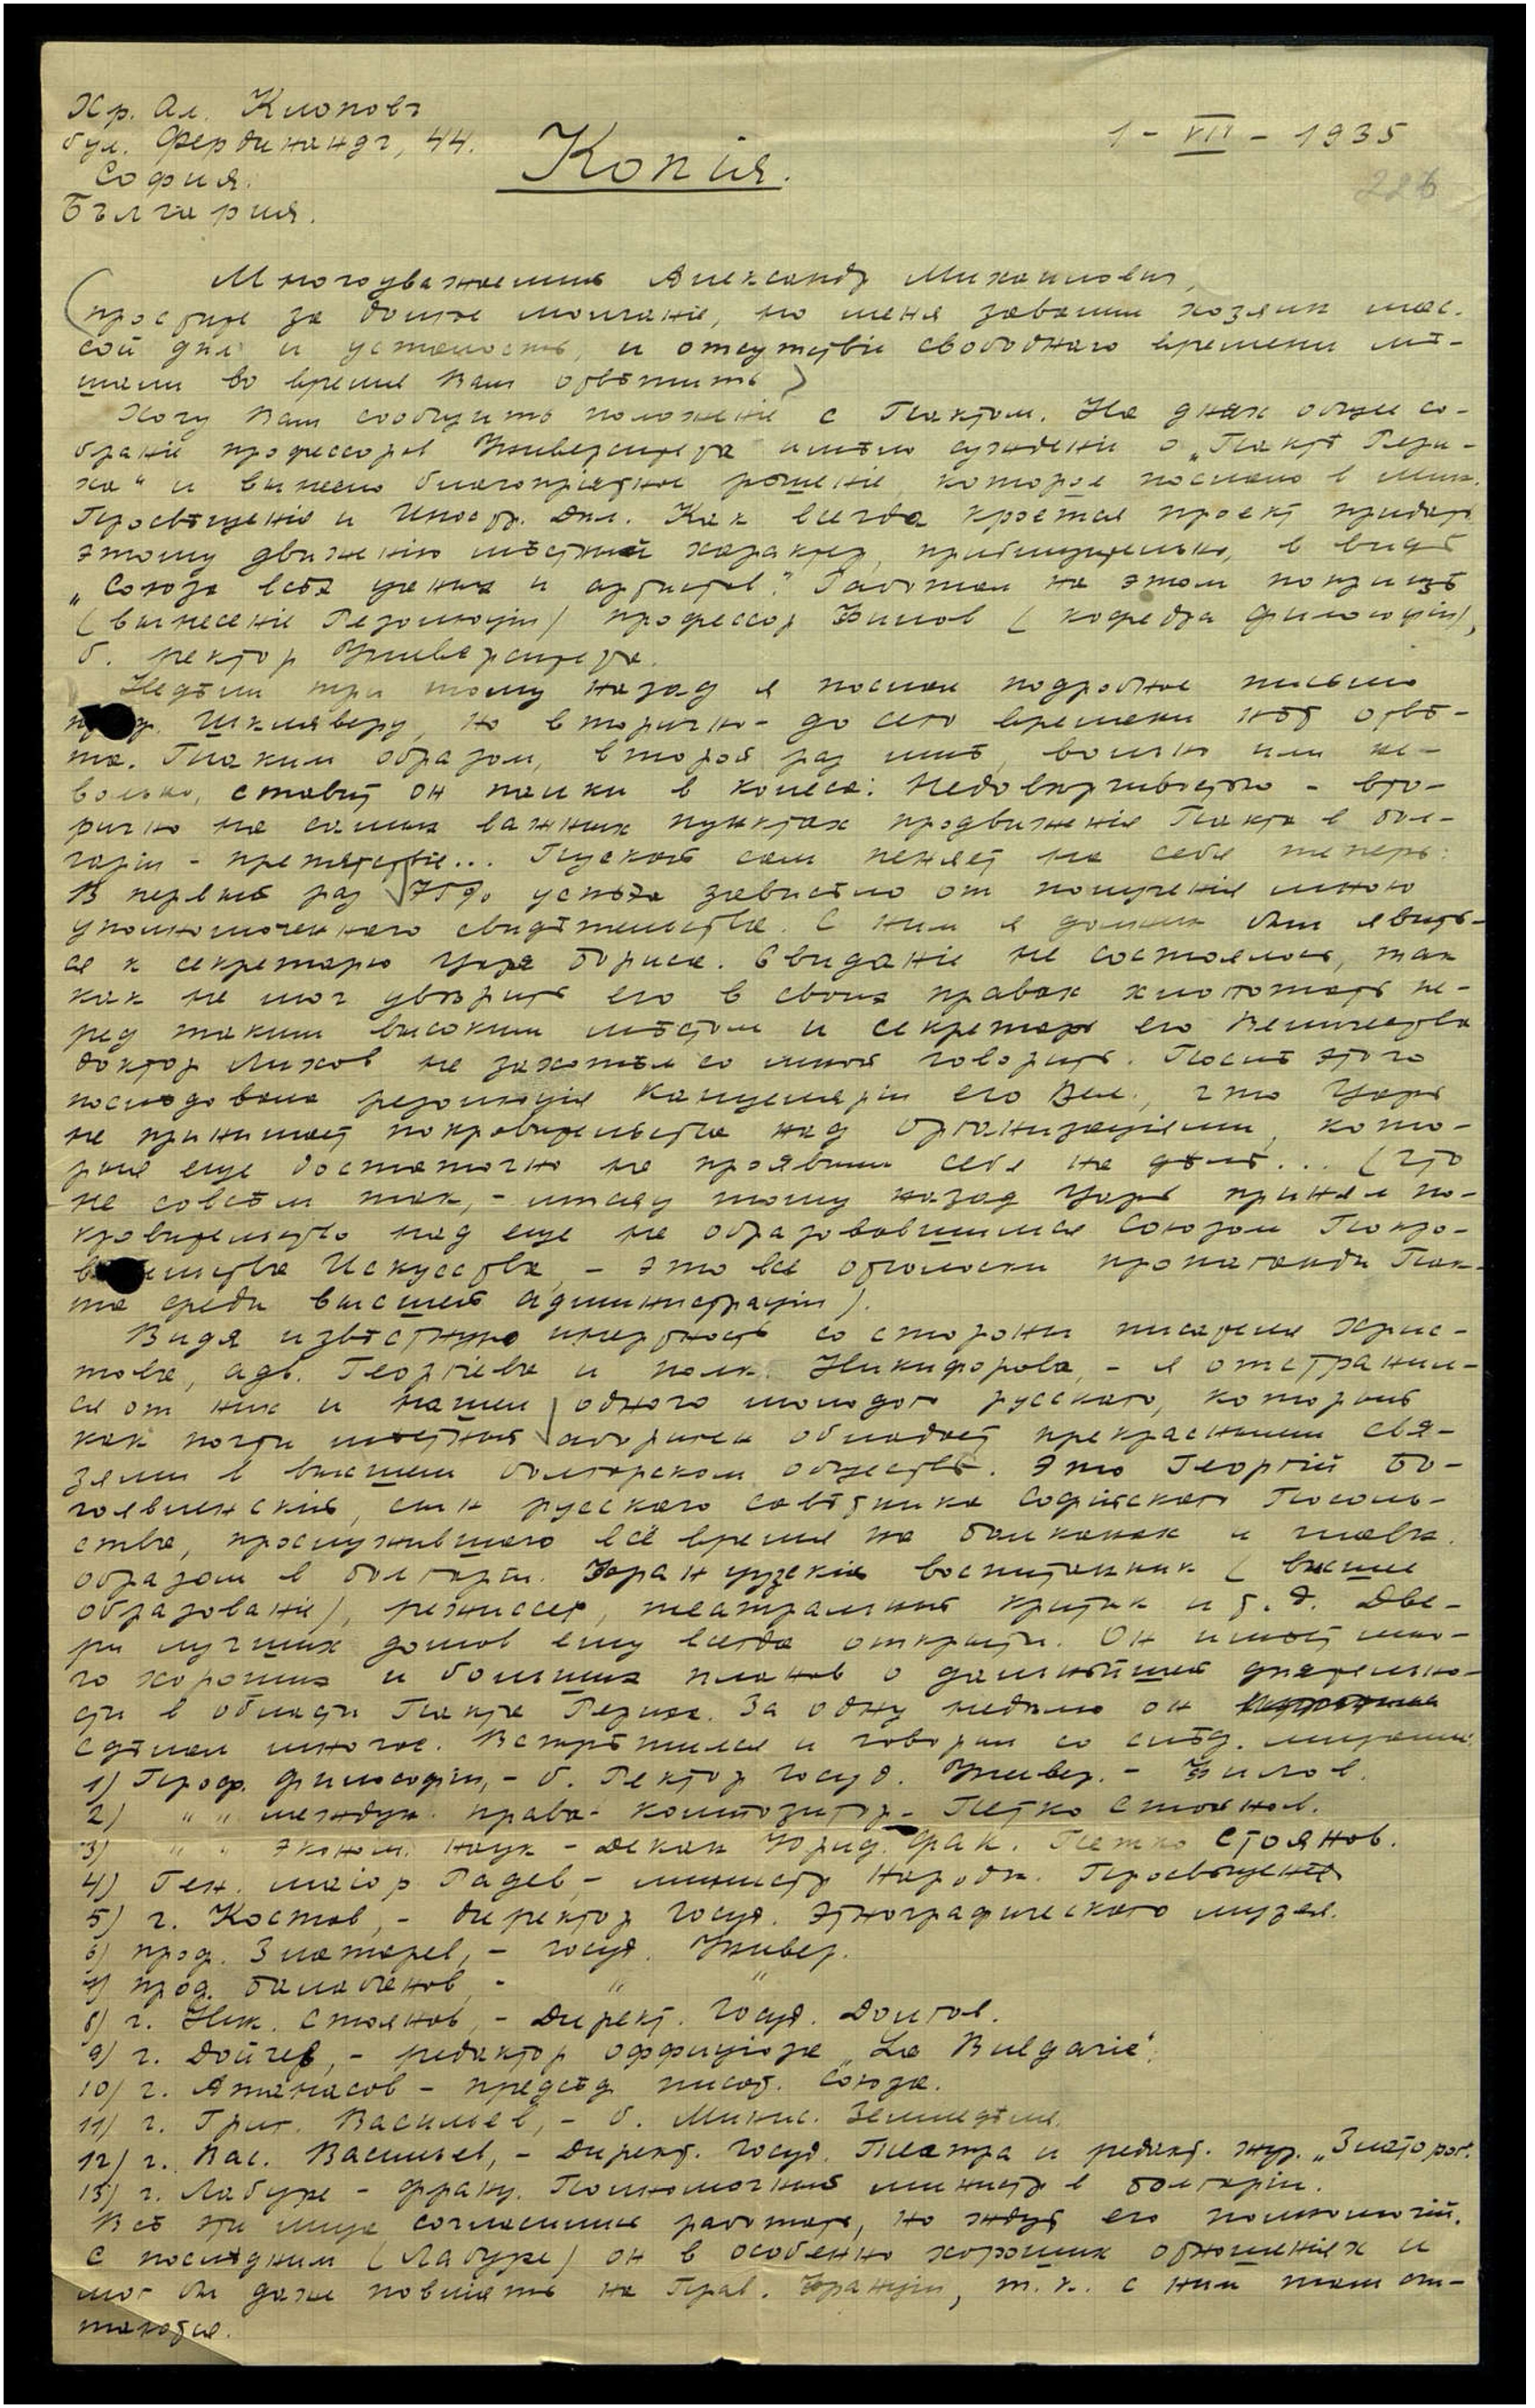 Хр. Ал. Клоповъ
бул. Фердинандъ, 44.
София.
България.
Копія.
1 - VII - 1935
226
Многоуважаемый Александр Михаилович,
(простите за долгое молчаніе, но меня завалил хозяин мас-
сой дѣл и усталость, и отсутствіе свободнаго времени мѣ-
шали во время Вам отвѣтить)
Хочу Вам сообщить положеніе с Пактом. На днях общее со-
браніе профессоров Университета имѣло сужденіе о „Пактѣ Рери-
ха“ и вынесло благопріятное рѣшеніе, которое послано в Мин.
Просвѣщенія и Иностр. Дѣл. Как всегда кроется проект придать
этому движенію мѣстный характер, приблизительно, в видѣ
„Союза всѣх ученых и артистов“. Работал на этом поприщѣ
(вынесеніе Резолюціи) профессор Филов (кафедра философіи),
б. ректор Университета.
Недѣли три тому назад я послал подробное письмо
Шкляверу, но вторично - до сего времени нѣт отвѣ-
та. Таким образом, второй раз мнѣ, вольно или не-
вольно, ставит он палки в колеса: Недовѣрчивостью - вто-
рично на самых важных пунктах продвиженія Пакта в Бол-
гаріи - препятствіе... Пускай сам пеняет на себя теперь:
В первый раз 75% успѣха зависѣло от полученія мною
уполномоченнаго свидѣтельства. С ним я должен был явить-
ся к секретарю Царя Бориса. Свиданіе не состоялось, так
как не мог увѣрить его в своих правах хлопотать пе-
ред таким высоким мѣстом и секретарь его Величества
доктор Лихов не захотѣл со мной говорить. Послѣ этого
послѣдовала резолюція Канцеляріи его Вел., что Царь
не принимает покровительства над организаціями, кото-
рыя еще достаточно не проявили себя на дѣлѣ... (что
не совсѣм так, - мѣсяц тому назад Царь принял по-
кровительство над еще не образовавшимся Союзом Покро-
вительства Искусства, - это все отголоски пропаганды Пак-
та среди высшей администраціи).
Видя извѣстную инертность со стороны писателя Хрис-
това, адв. Георгіева и полк. Никифорова, - я отстранил-
ся от них и нашел одного молодого русскаго, который
как почти мѣстный старожил обладает прекрасными свя-
зями в высшем болгарском обществѣ. Это Георгій Бо-
гоявленскій, сын русскаго совѣтника Софійскаго Посоль-
ства, прослужившаго всё время на Балканах и главн.
образом в Болгаріи. Французскій воспитанник (высшее
образованіе), режиссер, театральный критик и т. д. Две-
ри лучших домов ему всегда открыты. Он имѣет мно-
го хороших и больших планов о дальнѣйшей дѣятельно-
сти в области Пакта Рериха. За одну недѣлю он
сдѣлал многое. Встрѣтился и говорил со слѣд. лицами:
1) Проф. философіи, - б. Ректор Госуд. Универ. - Филов.
2) " " междун. права - композитор - Петко Стоянов.
3) " " Эконом. Наук - Декан Юрид. Фак. Петко Стоянов.
4) Ген. маіор Радев, - министр Народн. Просвѣщенія
5) г. Костов, - директор Госуд. Этнографическаго музея.
6) проф. Златарев, - Госуд. Универ.
7) проф. Балабанов, - " "
8) г. Ник. Стоянов, - Директ. Госуд. Долгов.
9) г. Дойчев, - редактор оффиціоза „La Bulgarie“.
10) г. Атанасов - предсѣд. писат. Союза.
11) г. Григ. Василев, - б. Минис. Земледѣлія.
12) г. Вас. Васильев, - Директ. Госуд. Театра и редакт. жур. „Златорог.
13) г. Лабуре - Франц. Полномочный министр в Болгаріи.
Всѣ эти лица согласились работать, но ждут его полномочій.
С послѣдним (Лабуре) он в особенно хороших отношеніях и
мог бы даже повліять на Прав. Франціи, т. к. с ним там